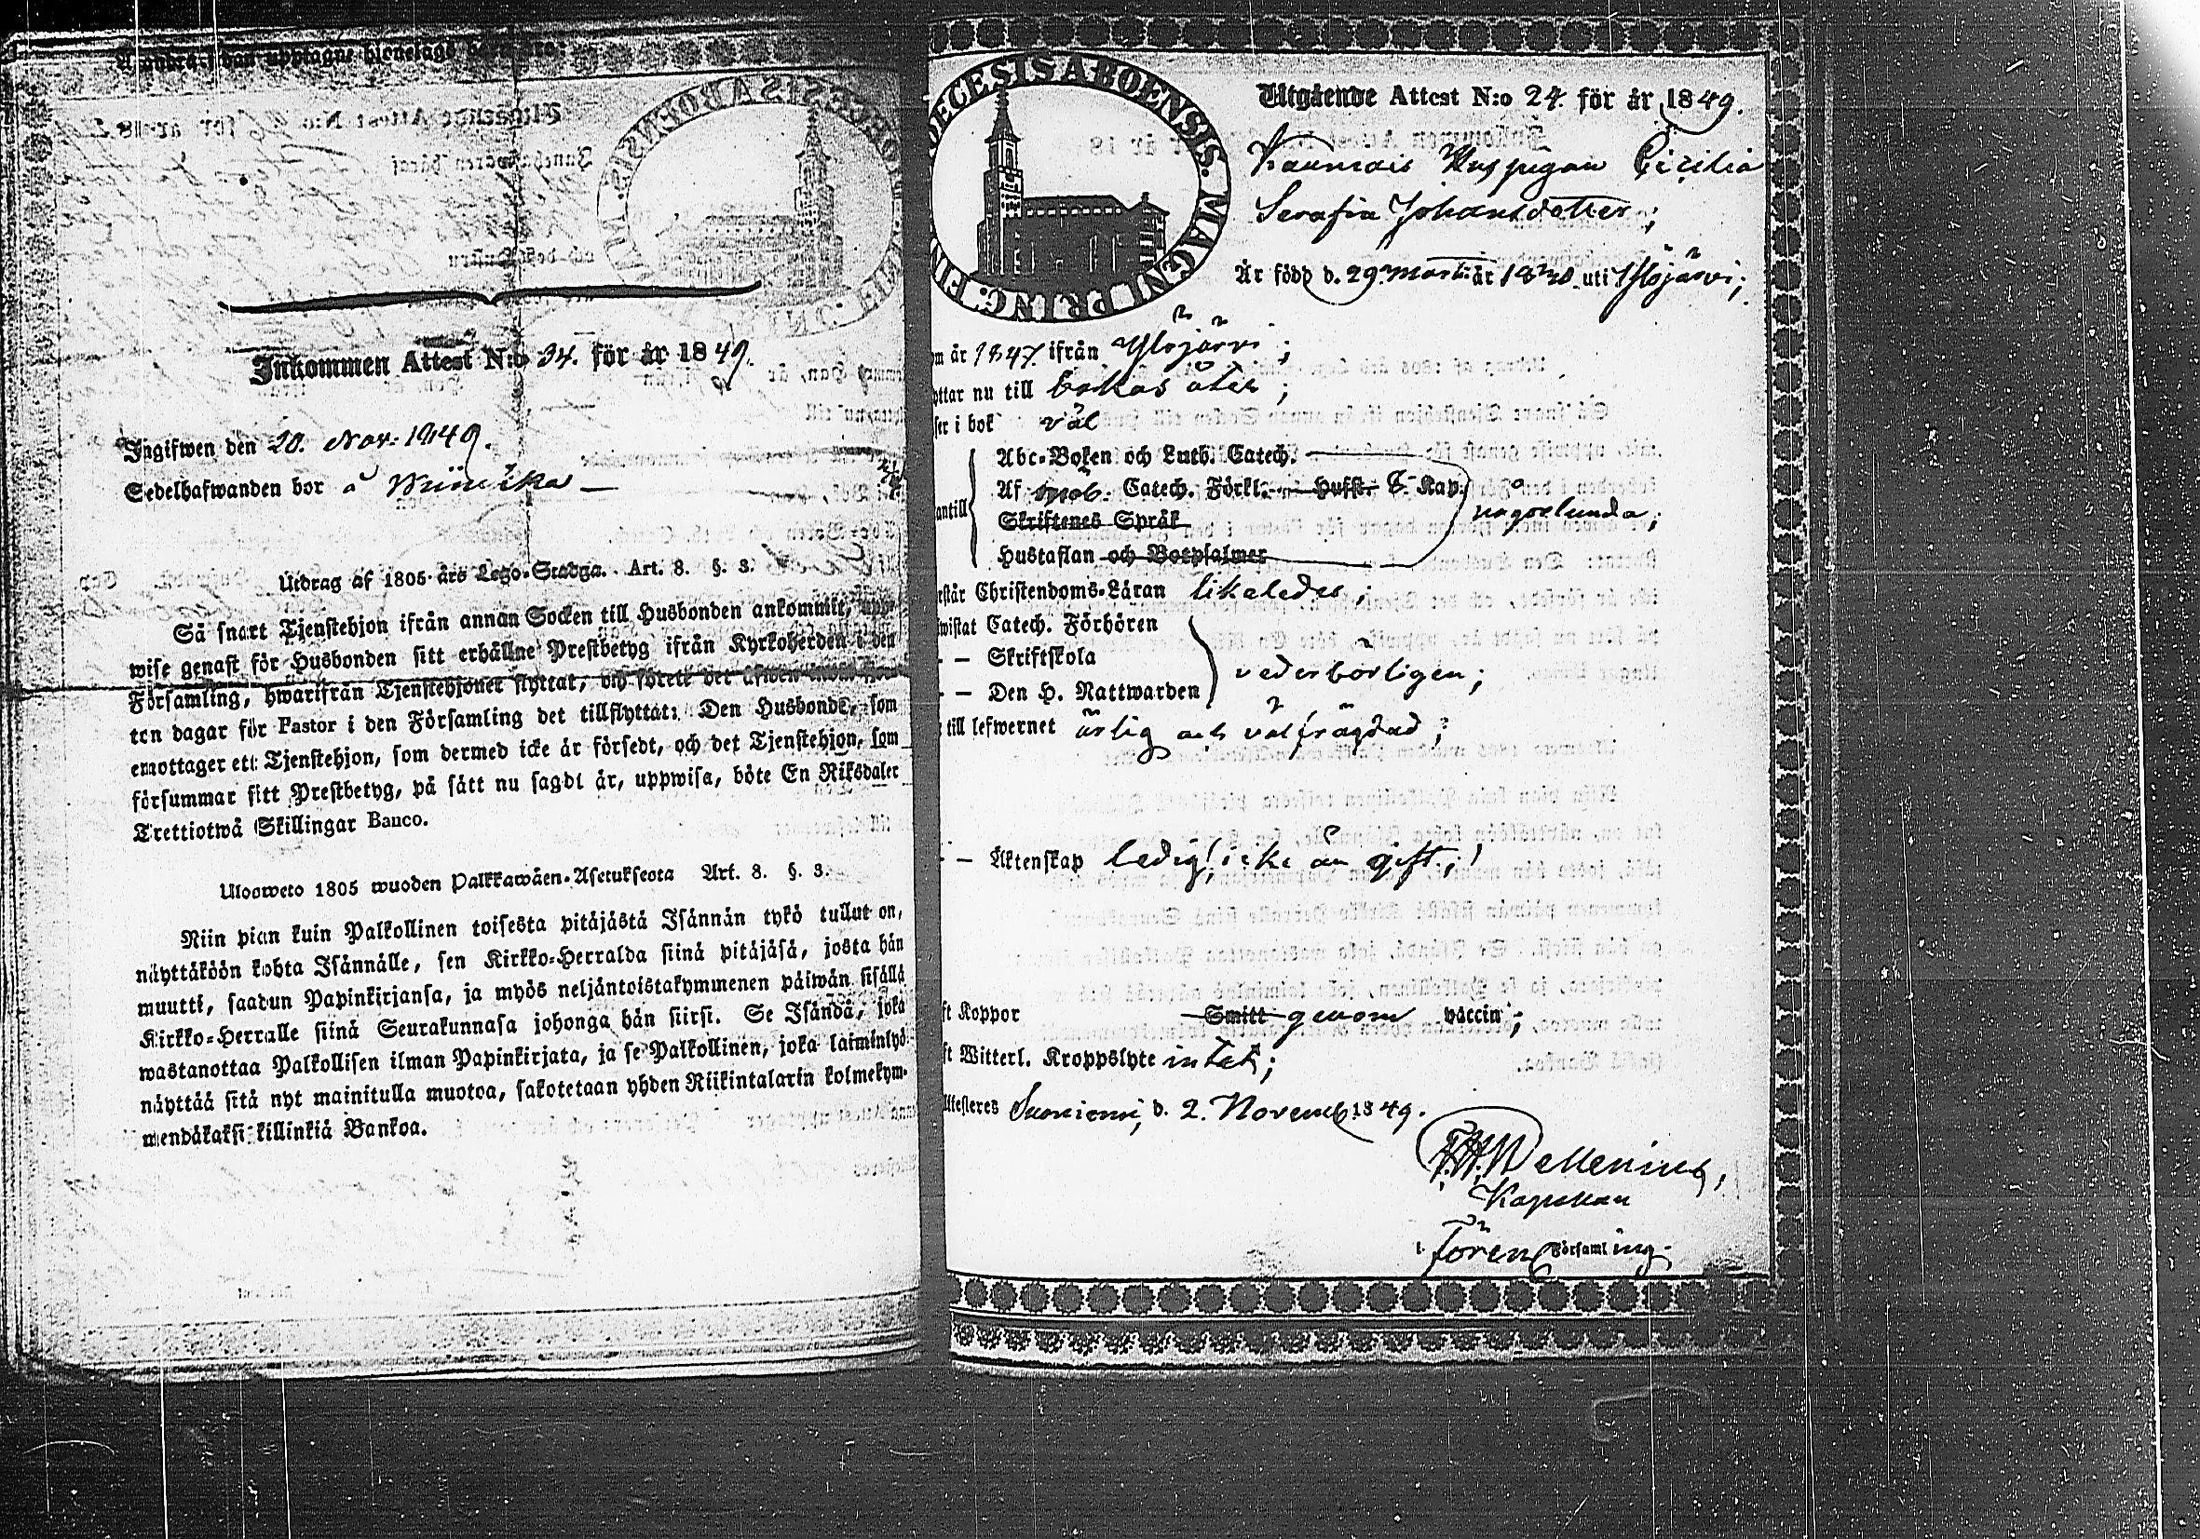 Inkommen Attest N:o 34. för år 1849.
Ingifwen den 20. Nov: 1849.
Sedelhafwanden bor å
Utdrag af 1805 års Lego-Stadga. Art. 8. §. 3.
Så snart Tjenstehjon ifrån annan Socken till Husbonden ankommit, upp-
wise genast för Husbonden sitt erhållne Prestbetyg ifrån Kyrkoherden i den
Församling, hwarifrån Tjenstehjonet flyttat, och förete det äfwen inom fjor-
ton dagar för Pastor i den Församling det tillflyttat: Den Husbonde, som
emottager ett Tjenstehjon, som dermed icke är försedt, och det Tjenstehjon, som
försummar sitt Prestbetyg, på sätt nu sagdt är, uppwisa, böte En Riksdaler
Trettiotwå Skillingar Banco.
Uloosweto 1805 wuoden Palkkawäen-Asetuksesta Art. 8. §. 3.
Niin pian kuin Palkollinen toisesta pitäjästä Isännän tykö tullut on,
näyttäköön kohta Isännälle, sen Kirkko-Herralda siinä pitäjäsä, josta hän
muutti, saadun Papinkirjansa, ja myös neljäntoistakymmenen päiwän sisällä
Kirkko-Herralle siinä Seurakunnasa johonga hän siirsi. Se Isändä, joka
wastanottaa Palkollisen ilman Papinkirjata, ja se Palkollinen, joka laiminlyö
näyttää sitä nyt mainitulla muotoa, sakotetaan yhden Riikintalarin kolmekym-
mendäkaksi killinkiä Bankoa.
DECESIS ABOENSIS. MAGNI PRINC. FIN
Utgående Attest N:o 24. för år 1849.
Cicilia
Serafia Johansdotter;
Är född d. 29 Martii år 1830 uti Ylöjärvi;
m år 1847 ifrån Ylöjärvi;
ottar nu till bakas åter;
ser i bok väl
Abc-Boken och Luth. Catech.
Af Catech. Förkl. Husst. S. Kap.
antill Skriftenes Språk någorlunda;
Hustaflan och Botpsalmer
rstår Christendoms-Läran likaledes;
wistat Catech. Förhören
- – Skriftskola vederbörligen;
- – Den H. Nattwarden
till lefwernet ärlig och välfrägdad;
- – Äktenskap ledig, icke än gift;
ft Koppor Smitt genom vaccin;
ft Witterl. Kroppslyte intet;
Attesteres Suoniemi, d. 2. Novemb. 1849.
Kapellan
i Församling.